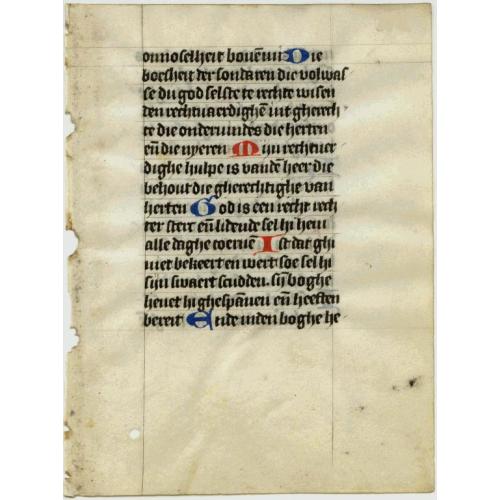 onnoselheit bouē mi Die
bosheit der sondaren die volwas
se du god selste te rechte wisen
den rechtuaerdighē uut gherech
te die onderuindes die herten
eñ die nyeren Mijn rechtuer
dighe hulpe is vandē heer die
behout die gherechtighe van
herten God is een recht rech
ter sterc eñ lidende sel hi hem
alle daghe toernē Ist dat ghi
niet bekeert en wert soe sel hi
sijn swaert scudden sijn boghe
heuet hi ghespānen eñ heeften
bereit Ende inden boghe he